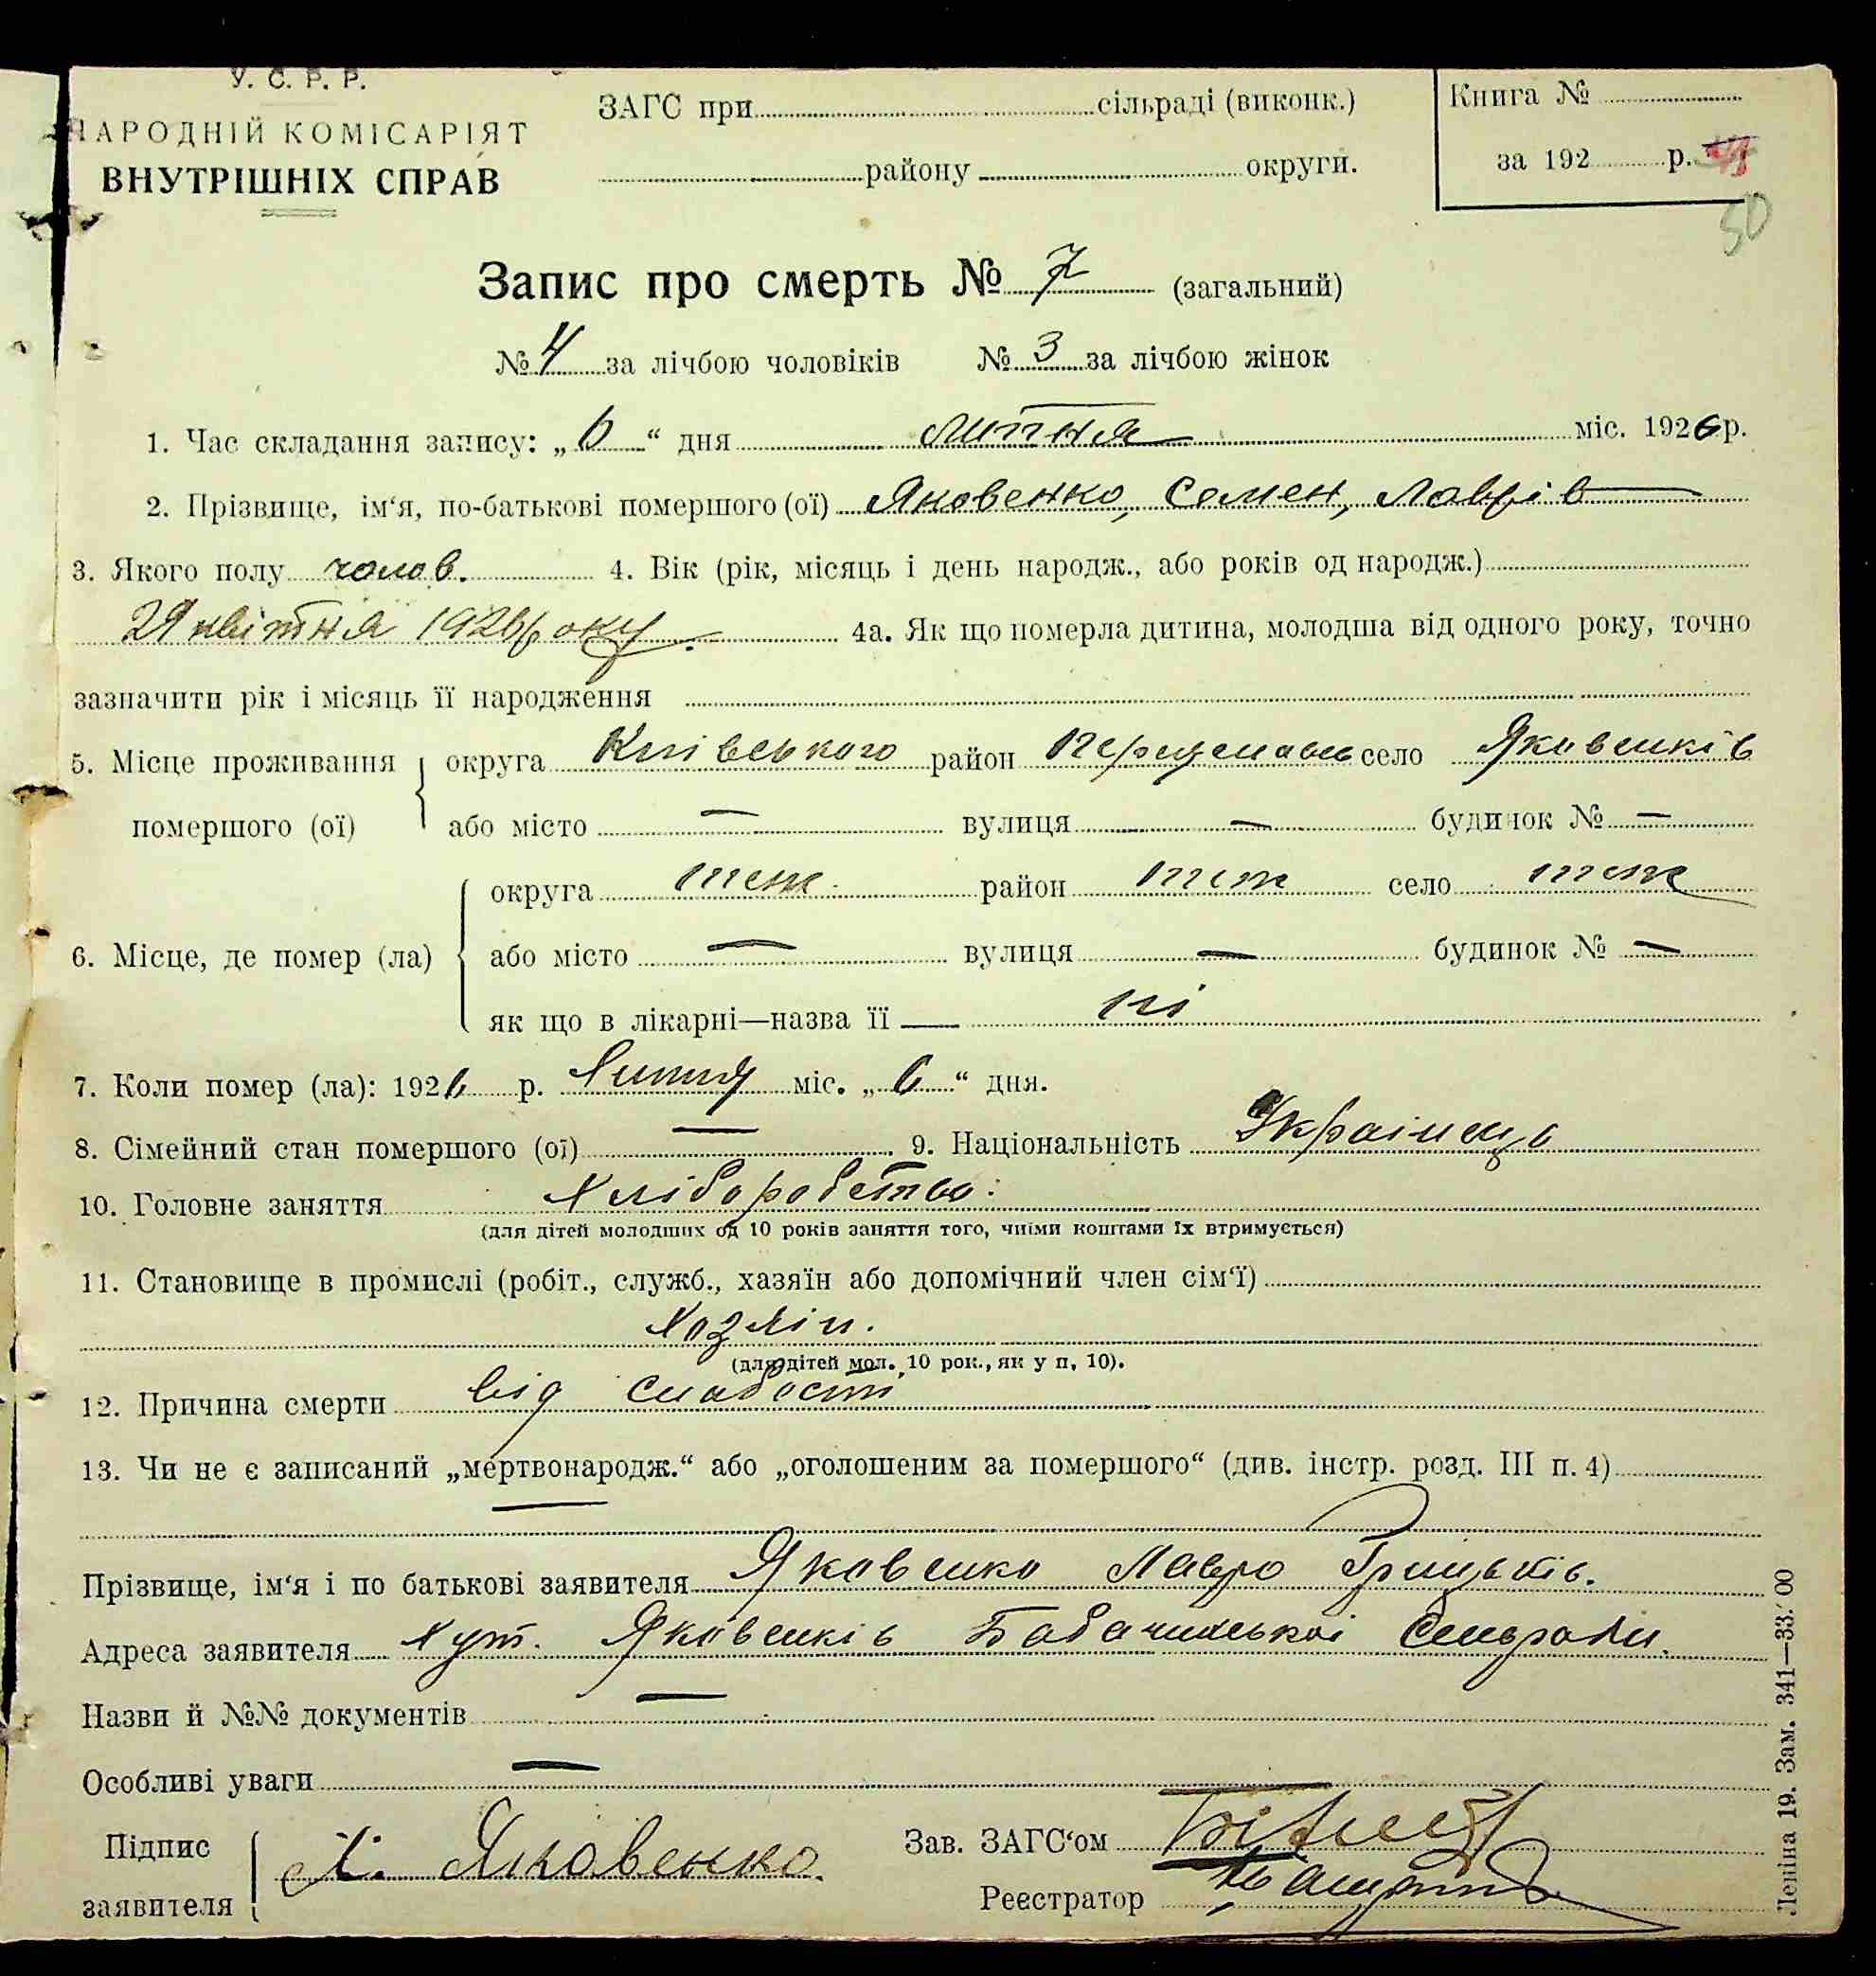 У. С. Р. Р.
НАРОДНІЙ КОМІСАРІЯТ
ВНУТРІШНІХ СПРАВ
ЗАГС при сільраді (виконк.)
району округи.
Книга №
за 192 р.
50
Запис про смерть № 7 (загальний)
№ 4 за лічбою чоловіків № 3 за лічбою жінок
1. Час складання запису: „6“ дня липня міс. 1926 р.
2. Прізвище, ім‘я, по-батькові помершого (ої) Яковенко, Семен, Лаврів
3. Якого полу чолов. 4. Вік (рік, місяць і день народж., або років од народж.)
29 квітня 1926 року. 4а. Як що померла дитина, молодша від одного року, точно
зазначити рік і місяць її народження
5. Місце проживання помершого (ої) округа Київського район село Яковенків
або місто — вулиця — будинок № —
6. Місце, де помер (ла) округа теж район теж село теж
або місто — вулиця — будинок № —
як що в лікарні—назва її — ні
7. Коли помер (ла): 1926 р. Липня міс. „6“ дня.
8. Сімейний стан помершого (ої) — 9. Національність Українець
10. Головне заняття Хліборобство:
(для дітей молодших од 10 років заняття того, чиїми коштами їх втримується)
11. Становище в промислі (робіт., служб., хазяїн або допомічний член сім‘ї)
Хозяін.
(для дітей мол. 10 рок., як у п, 10).
12. Причина смерти від слабости
13. Чи не є записаний „мертвонародж.“ або „оголошеним за помершого“ (див. інстр. розд. III п. 4)
—
Прізвище, ім‘я і по батькові заявителя Яковенко Лавро Грицьків.
Адреса заявителя хут. Яковенків Бабачихської Сільради.
Назви й №№ документів —
Особливі уваги —
Підпис заявителя Л. Яковенко.
Зав. ЗАГС‘ом
Реєстратор
Леніна 19. Зам. 341—33.000